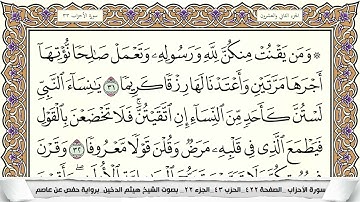 سورة الأحزاب ٣٣
الجزء الثاني والعشرون
۞ وَمَن يَقْنُتْ مِنكُنَّ لِلَّهِ وَرَسُولِهِۦ وَتَعْمَلْ صَٰلِحًا نُّؤْتِهَآ
أَجْرَهَا مَرَّتَيْنِ وَأَعْتَدْنَا لَهَا رِزْقًا كَرِيمًا ٣١ يَٰنِسَآءَ ٱلنَّبِيِّ
لَسْتُنَّ كَأَحَدٍ مِّنَ ٱلنِّسَآءِ إِنِ ٱتَّقَيْتُنَّ ۚ فَلَا تَخْضَعْنَ بِٱلْقَوْلِ
فَيَطْمَعَ ٱلَّذِى فِى قَلْبِهِۦ مَرَضٌ وَقُلْنَ قَوْلًا مَّعْرُوفًا ٣٢ وَقَرْنَ
سورة الأحزاب _ الصفحة ٤٢٢ _ الحزب ٤٣ _ الجزء ٢٢ _ بصوت الشيخ هيثم الدخين _ برواية حفص عن عاصم